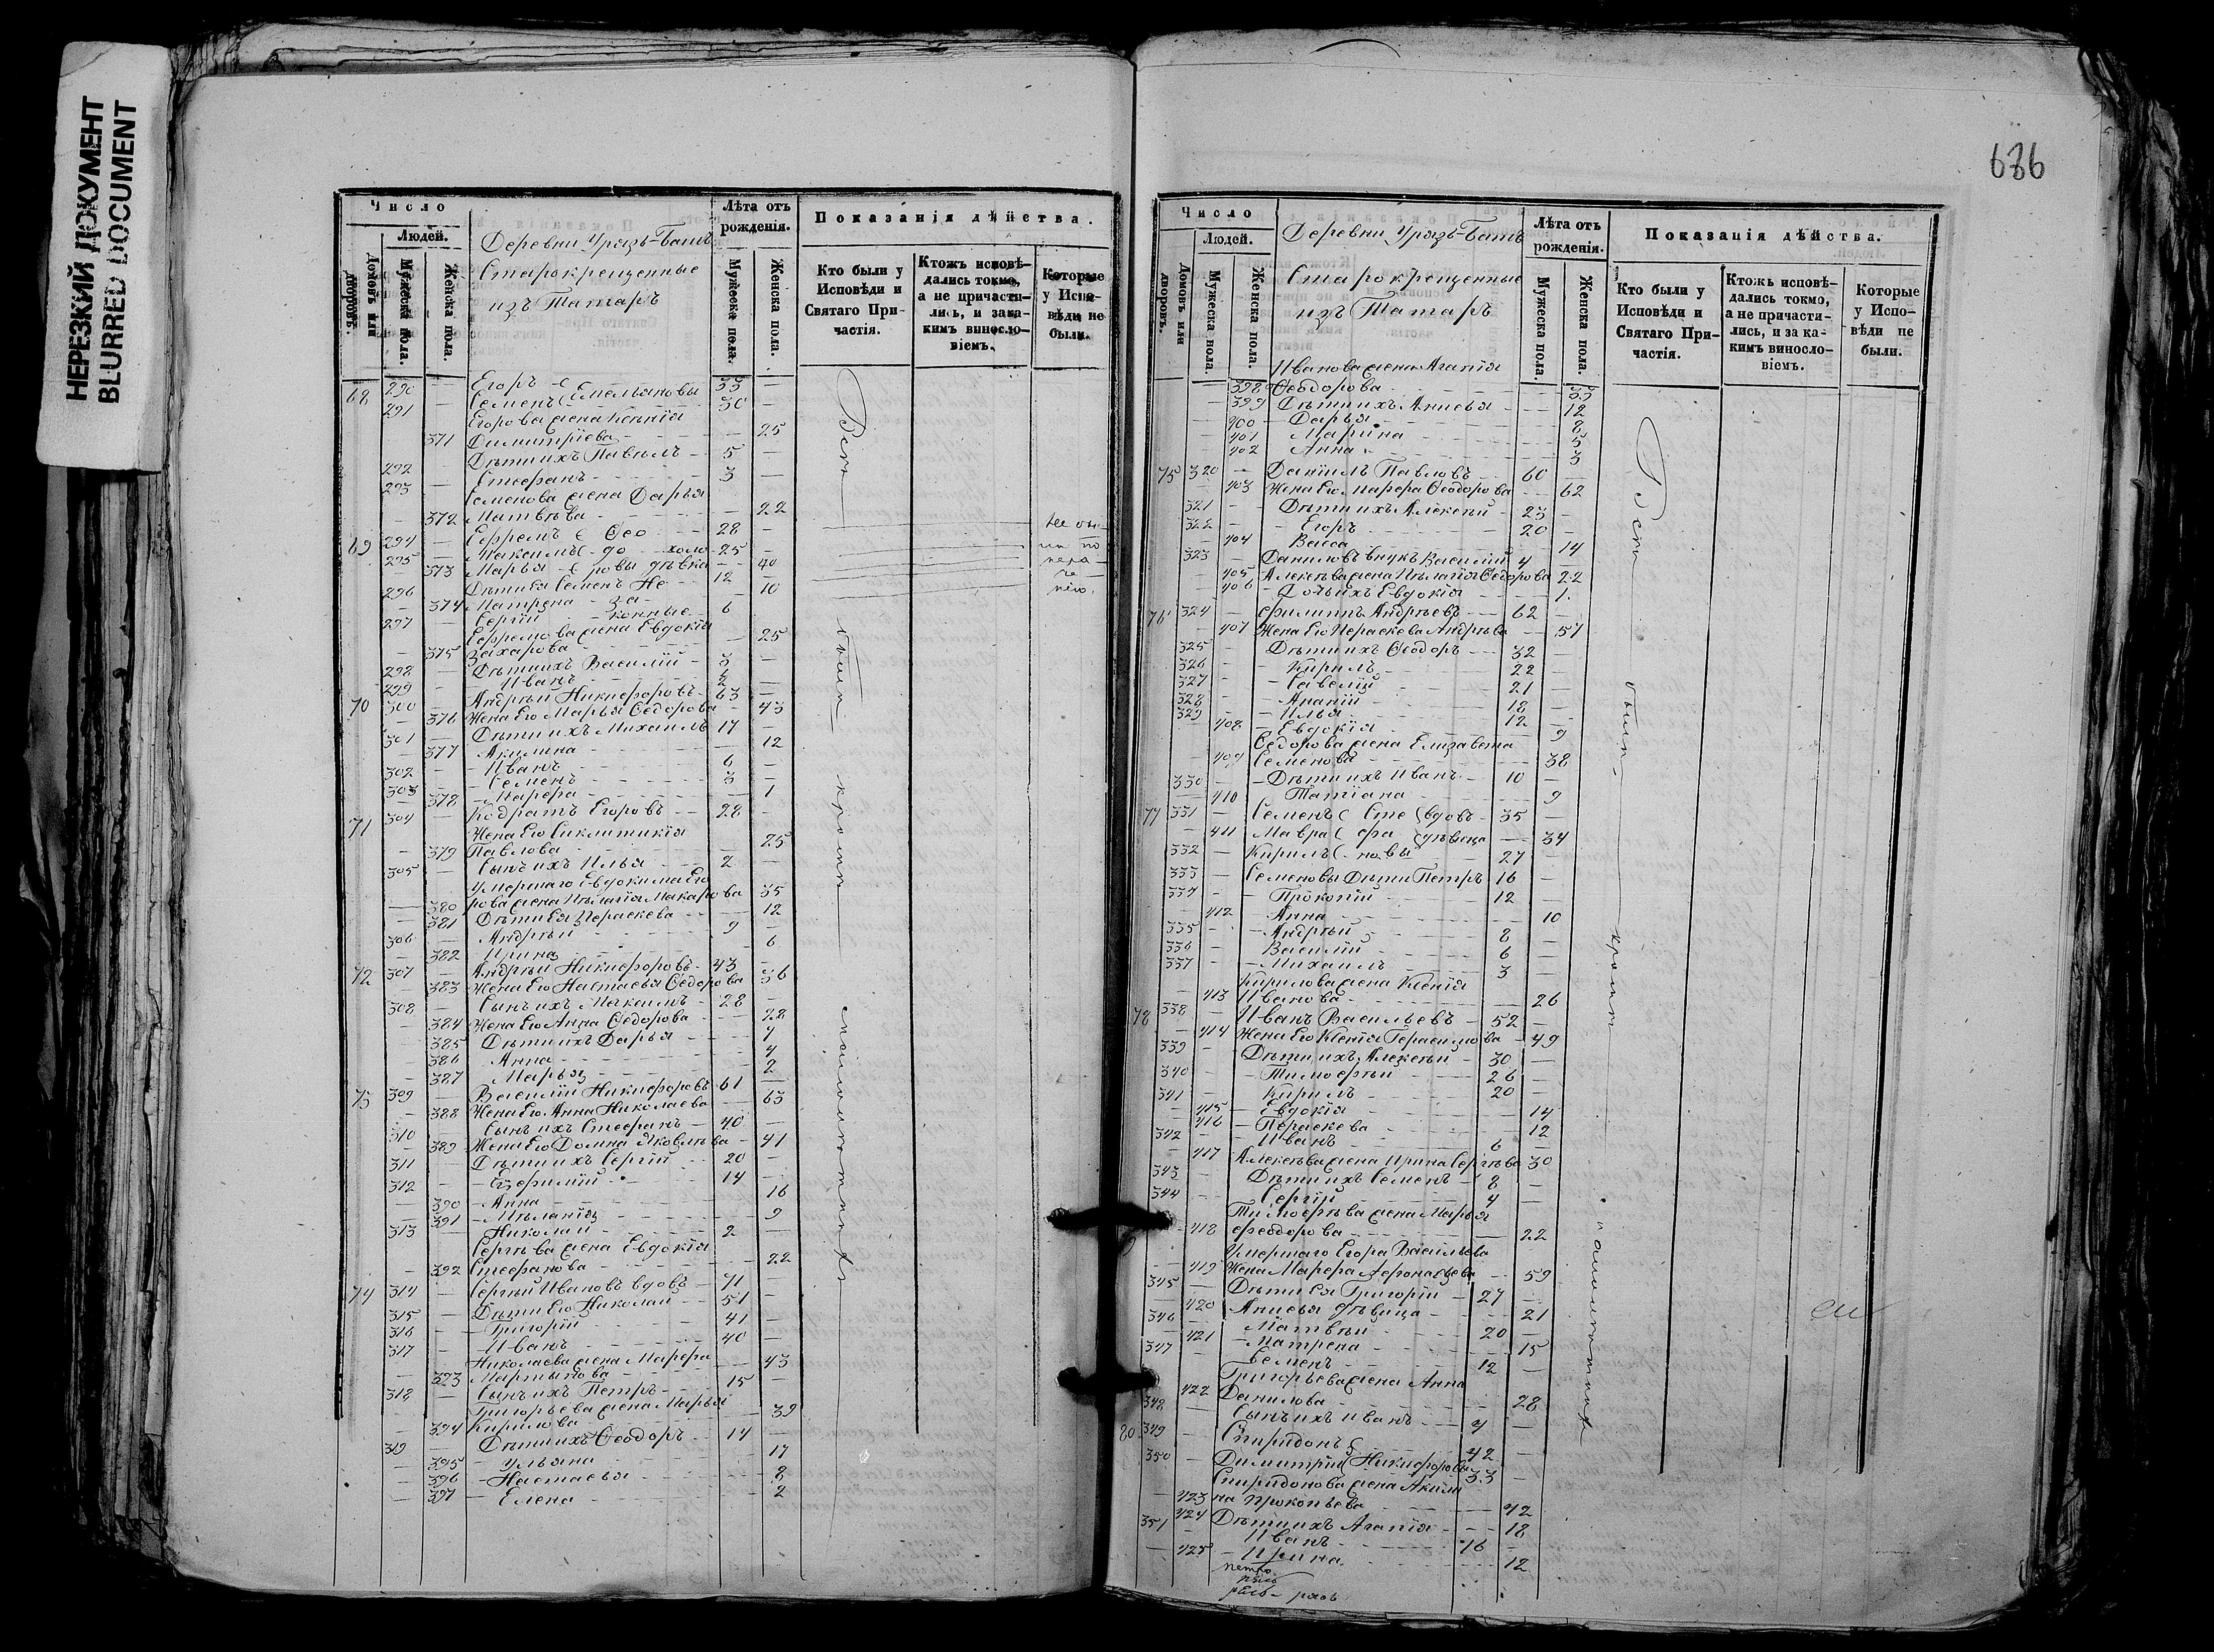 НЕРЕЗКИЙ ДОКУМЕНТ
BLURRED DOCUMENT
Число
Людей.
Домовъ или дворовъ.
Мужеска пола.
Женска пола.
Деревни Урязъ-Башъ
Старокрещенные
изъ Татаръ
Лѣта отъ рожденія.
Мужеска пола.
Женска пола.
Показанія дѣйства.
Кто были у Исповѣди и Святаго Причастія.
Ктожъ исповѣдались токмо, а не причастились, и за какимъ винословіемъ.
Которые у Исповѣди не были.
68 290 — Егоръ 33 —
291 — Семенъ Емельяновы 30 —
Егорова жена Ксенія
371 Димитріева 25
292 — Дѣти ихъ Павелъ 5 —
293 — Стефанъ 3 —
Семенова жена Дарья
372 Матвѣева 22
69 294 — Ефремъ Ѳео 28
295 — Максимъ до холо 25 —
373 Марья ровы дѣвка 40
296 Дѣти ея Семенъ Не 12 —
374 Матрена за 10
297 — Сергій конные 6
Ефремова жена Евдокія
375 Захарова 25
298 — Дѣти ихъ Василій 3 —
299 — Иванъ 2 —
70 300 — Андрей Никифоровъ 63 —
376 Жена Его Марья Ѳедорова 43
301 — Дѣти ихъ Михаилъ 17
377 Акилина 12
302 — Иванъ 6 —
303 — Семенъ 3 —
378 Марфа 1
71 304 — Кодратъ Егоровъ 28 —
Жена Его Сиклитикія
379 Павлова 25
305 — Сынъ ихъ Илья 2 —
Умершаго Евдокима Его
380 рова жена Пелагія Макарова 35
381 Дѣти Ея Параскева 12
306 — Андрей 9 —
382 Ирина 6
72 307 — Андрей Никифоровъ 43 —
383 Жена Его Настасья Ѳедорова 36
308 — Сынъ ихъ Максимъ 28 —
384 Жена Его Анна Ѳедорова 28
385 Дѣти ихъ Дарья 7
386 Анна 4
387 Марья 2
73 309 — Василій Никифоровъ 61 —
388 Жена Его Анна Николаева 63
310 Сынъ ихъ Стефанъ 40 —
389 Жена Его Домна Яковлева 41
311 — Дѣти ихъ Сергій 20 —
312 — Ефимій 14 —
390 Анна 16
391 Меланія 9
313 — Николай 2 —
Сергѣева жена Евдокія
392 Стефанова 22
74 314 — Сергѣй Ивановъ вдовъ 71 —
315 — Дѣти Его Николай 51 —
316 — Григорій 41 —
317 — Иванъ 40 —
Николаева жена Марфа
393 Мартынова 43
318 Сынъ ихъ Петръ 15 —
Григорьева жена Марья
394 Кирилова 39
319 — Дѣти ихъ Ѳеодоръ 14 —
395 Ульяна 17
396 Настасья 8
397 Елена 2
Всѣ были кромѣ
не были по нерадѣнію.
686
Число
Людей.
Домовъ или дворовъ.
Мужеска пола.
Женска пола.
Деревни Урязъ-Башъ
Старокрещенные
изъ Татаръ
Лѣта отъ рожденія.
Мужеска пола.
Женска пола.
Показанія дѣйства.
Кто были у Исповѣди и Святаго Причастія.
Ктожъ исповѣдались токмо, а не причастились, и за какимъ винословіемъ.
Которые у Исповѣди не были.
Иванова жена Агапія
398 Ѳеодорова 33
399 Дѣти ихъ Анисья 12
400 Дарья 8
401 Марина 5
402 Анна 3
75 320 — Даніилъ Павловъ 60 —
403 Жена Его Марфа Ѳеодорова 62
321 — Дѣти ихъ Алексѣй 23 —
322 — Егоръ 20 —
404 Васса 14
323 — Даниловъ внукъ Василій 4
405 Алексѣева жена Пелагія Ѳедорова 22
406 Дочь ихъ Евдокія 1
76 324 — Филиппъ Андреевъ 62 —
407 Жена Его Параскева Андреева 57
325 — Дѣти ихъ Ѳеодоръ 32 —
326 — Кирилъ 22 —
327 — Савелій 21 —
328 — Ананій 18 —
329 — Илья 12 —
408 Евдокія 9
Ѳедорова жена Елизавета
409 Семенова 38
330 — Дѣти ихъ Иванъ 10 —
410 Татіана 9
77 331 — Семенъ Сте вдовъ 35 —
411 Мавра фа дѣвица 34
332 — Кирилъ новы 27 —
333 — Семеновы Дѣти Петръ 16 —
334 — Прокопій 12 —
412 Анна 10
335 — Андрей 8 —
336 — Василій 6 —
337 — Михаилъ 3 —
Кирилова жена Ксенія
413 Иванова 26
78 338 — Иванъ Васильевъ 52 —
414 Жена Его Ксенія Герасимова 49
339 — Дѣти ихъ Алексѣй 30 —
340 — Тимофей 26 —
341 — Кирилъ 20 —
415 Евдокія 14
416 Параскева 12
342 — Иванъ 6 —
417 Алексѣева жена Ирина Сергѣева 30
343 Дѣти ихъ Семенъ 8 —
344 — Сергій 4 —
Тимофеева жена Марья
418 Феодорова 22
Умершаго Егора Васильева
419 Жена Марфа Афонасьева 59
345 — Дѣти Ея Григорій 27 —
420 Анисья дѣвица 21
346 — Матвѣй 20 —
421 Матрена 15
347 — Семенъ 12 —
Григорьева жена Анна
422 Данилова 28
348 — Сынъ ихъ Иванъ 4 —
80 349 — Спиридонъ 42 —
350 — Димитрій Никифоровы 33 —
Спиридонова жена Акили
423 на Прокопьева 42
424 Дѣти ихъ Агапія 18
351 — Иванъ 16 —
425 Ирина 12
Всѣ были кромѣ